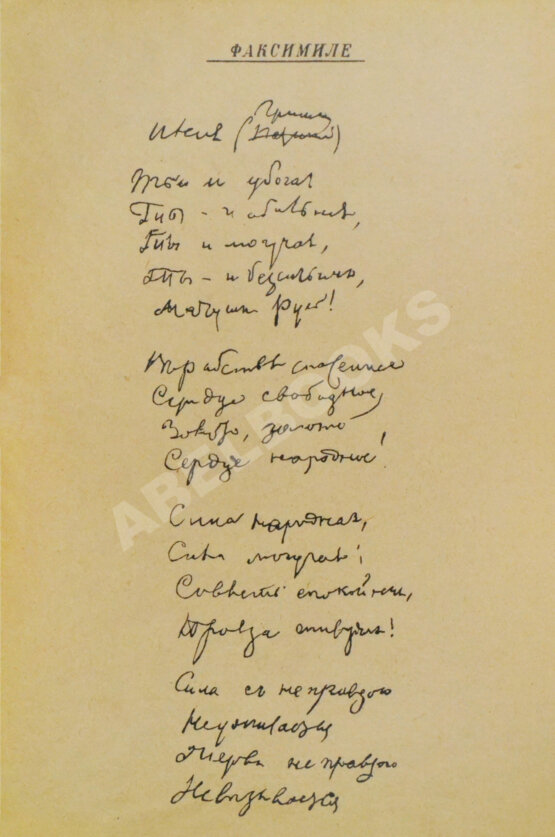 ФАКСИМИЛЕ
Гриши
Песня
Ты и убогая
Ты - и обильная,
Ты и могучая,
Ты - и безсильная,
Матушка Русь!
Въ рабствѣ спасенное
Сердце свободное,
Золото, золото
Сердце народное!
Сила народная,
Сила могучая:
Совѣсть спокойная,
Правда живучая!
Сила съ неправдою
Неуживается
Жертва неправдою
Невызывается
ABELBOOKS